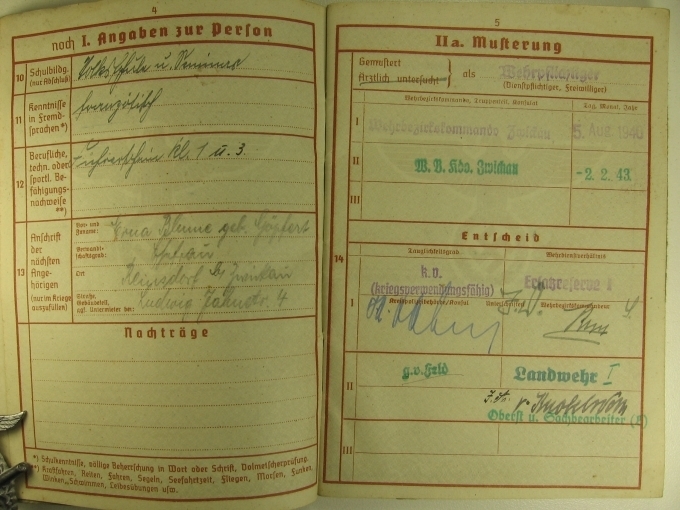 4
noch I. Angaben zur Person
10 Schulbildg. (nur Abschluß)
Volksschule u. Seminar
11 Kenntnisse in Fremdsprachen *)
französisch
12 Berufliche, techn. oder sportl. Befähigungsnachweise **)
Führerschein Kl. 1 u. 3
13 Anschrift der nächsten Angehörigen (nur im Kriege auszufüllen)
Vor- und Zuname:
Erna Blume geb. Göpfert
Verwandtschaftsgrad:
Ehefrau
Ort
Reinsdorf Zwickau
Straße, Gebäudeteil, ggf. Untermieter bei:
Ludwig Jahnstr. 4
Nachträge
*) Schulkenntnisse, völlige Beherrschung in Wort oder Schrift, Dolmetscherprüfung.
**) Kraftfahren, Reiten, Fahren, Segeln, Seefahrtzeit, Fliegen, Morsen, Funken,
Winken, Schwimmen, Leibesübungen usw.
5
IIa. Musterung
Gemustert
Ärztlich untersucht
als Wehrpflichtiger
(Dienstpflichtiger, Freiwilliger)
Wehrbezirkskommando, Truppenteil, Konsulat
Tag, Monat, Jahr
I Wehrbezirkskommando Zwickau 5. Aug. 1940
II W. B. Kdo. Zwickau -2. 2. 43.
III
Entscheid
14
Tauglichkeitsgrad
Wehrdienstverhältnis
k.v.
(kriegsverwendungsfähig)
Ersatzreserve I
I
Kreispolizeibehörde/Konsul
Wehrbezirkskommandeur
II g.v. Feld Landwehr I
Oberst u. Sachbearbeiter (E)
III